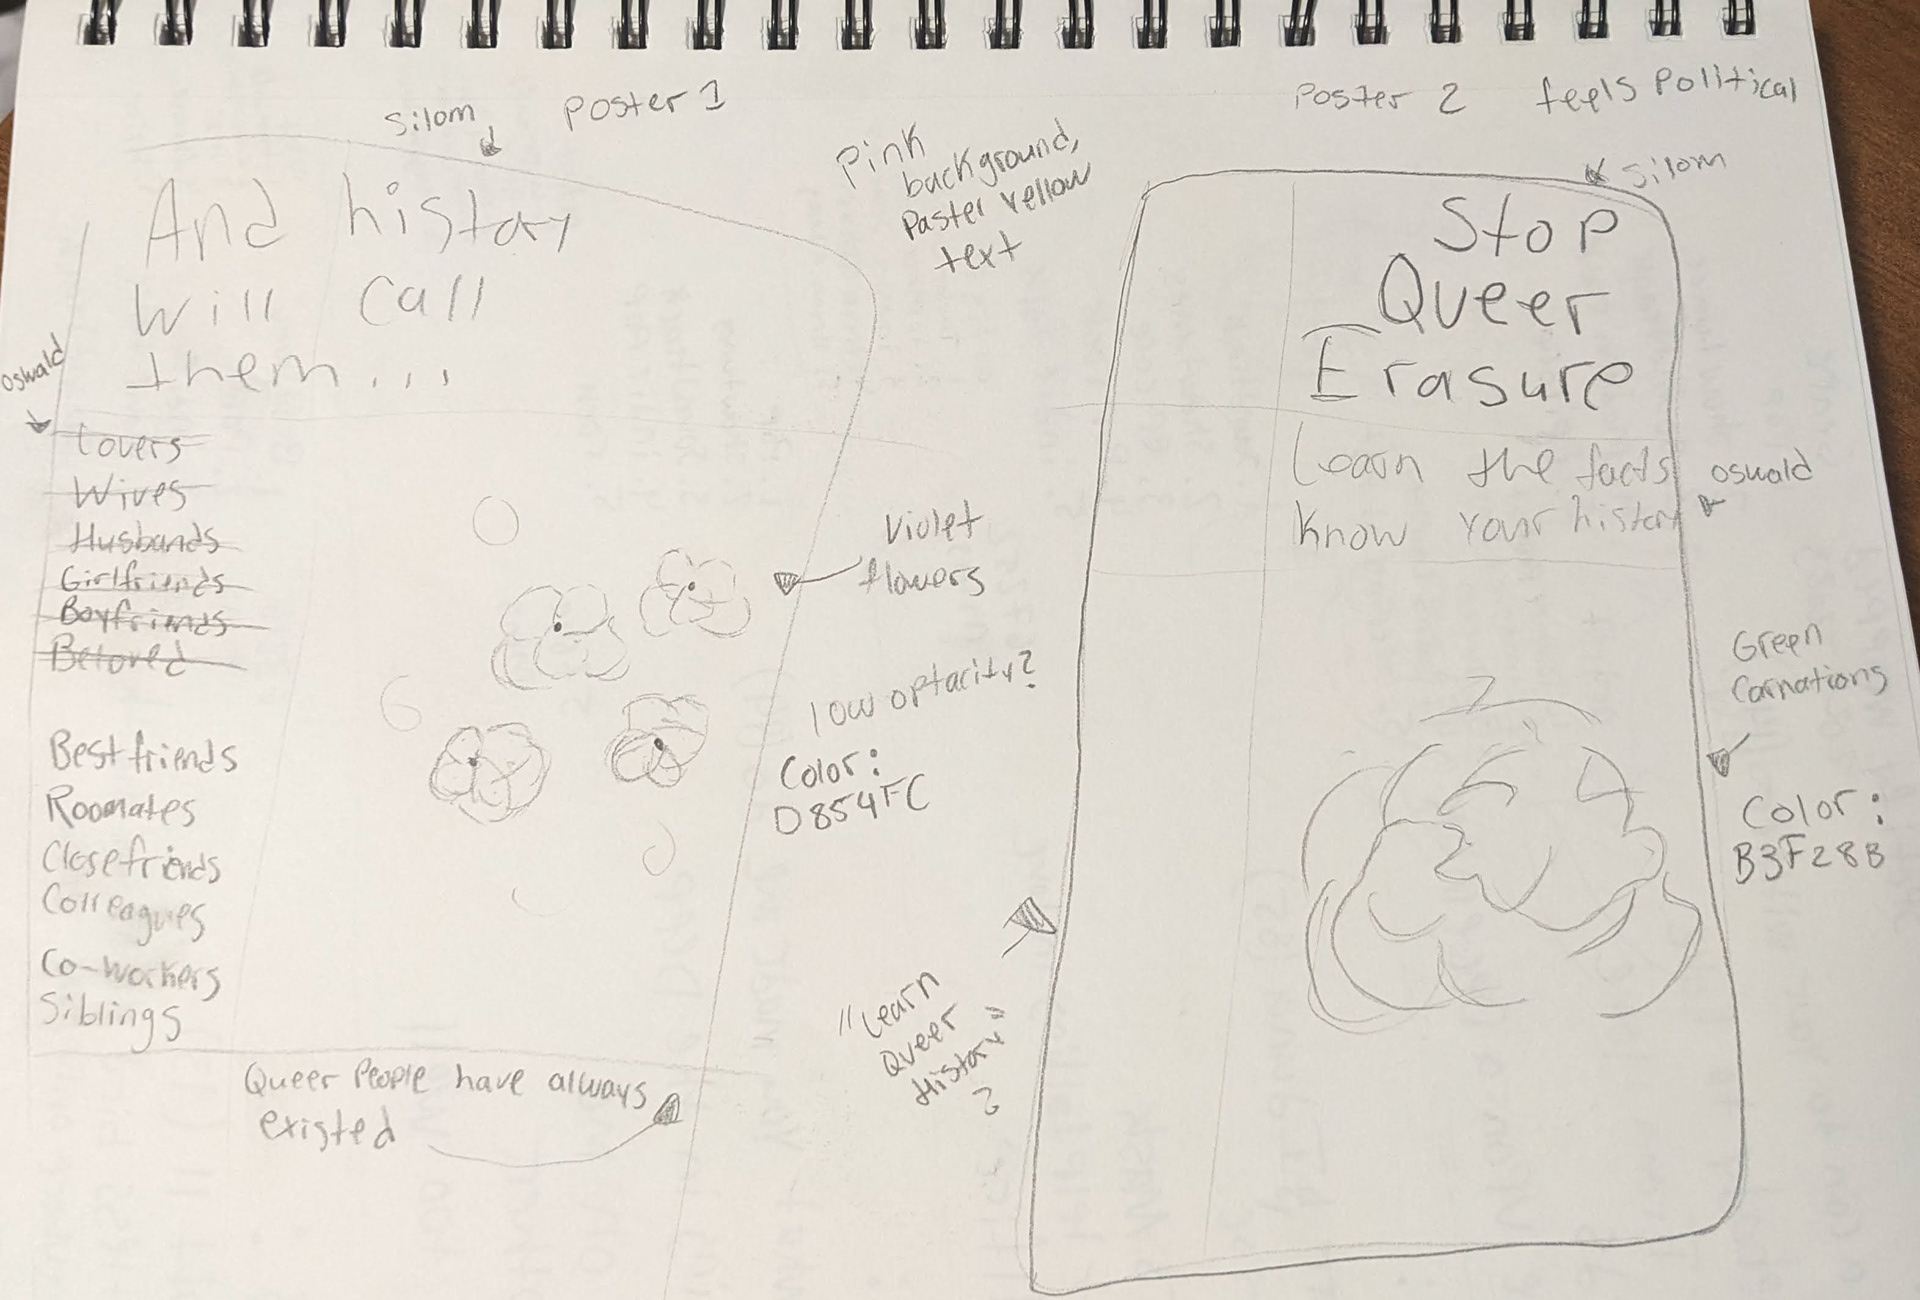 Silom
Poster 1
And history
will call
them...
oswald
Lovers
Wives
Husbands
Girlfriends
Boyfriends
Beloved
Best friends
Roomates
Close friends
Colleagues
Co-workers
Siblings
Queer People have always
existed
Pink
background,
Paster Yellow
text
Violet
flowers
low optacity?
Color:
D854FC
Poster 2 feels Political
Silom
Stop
Queer
Erasure
Learn the facts
Know your history
oswald
Green
Carnations
Color:
B3F28B
"Learn
Queer
History"
?